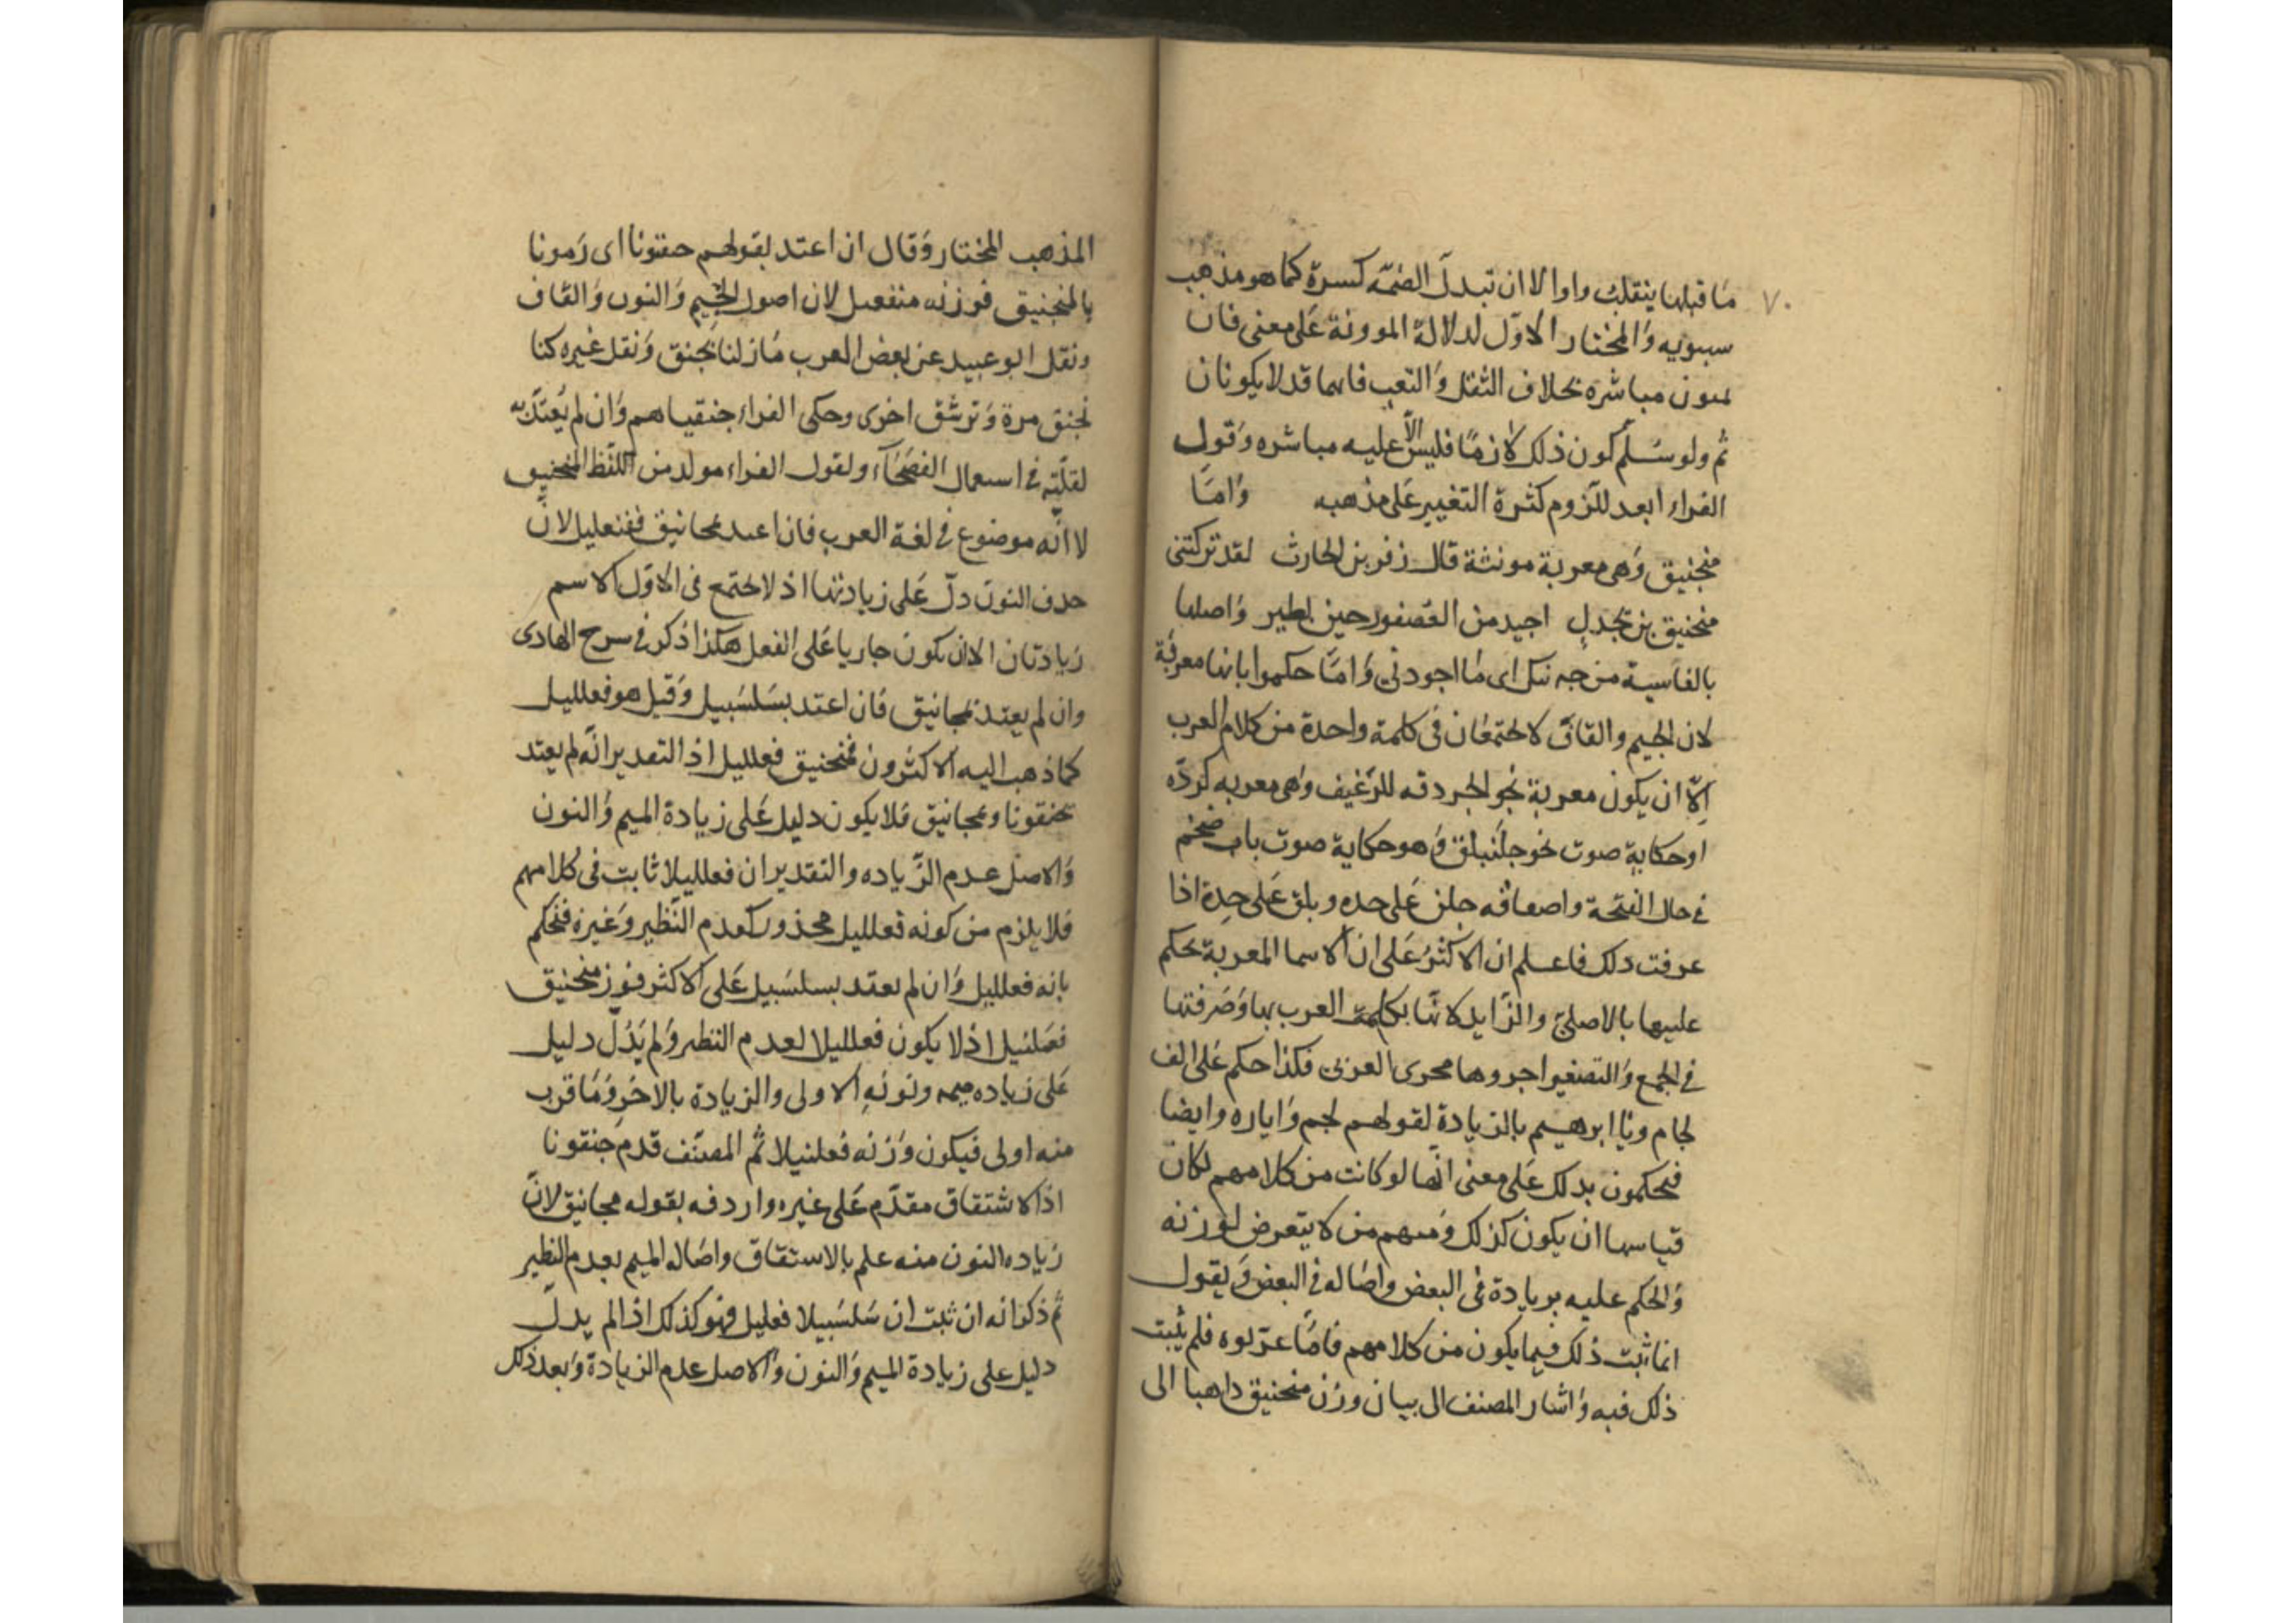 ٧٠
ما قبلها ينقلب واوا الا ان تبدل الضمة كسرة كما هو مذهب
سيبويه وَالمختار الاوّل لدلالة المووُنة عَلى معنى فان
مباشره بخلاف الثقل وَالتعب فانهما قد لا يكونان
ثم ولو سُلم كون ذلك لازمًا فليس الّا عليه مباشره وَقول
الفراء ابعد للزوم كثرة التغيير عَلى مذهبه وَامّا
منجنيق وَهى معربة مونثة قال زفر بن الحارث لقد تركتنى
منجنيق بن بَجدلٍ احيد من العُصفور حين يطير وَاصلها
بالفاسية من جه نيك اى مَا اجودنى وَامّا حكموا بانها معربة
لان الجيم والقاف لا يجتمعان فى كلمة واحدة من كلام العرب
اِلّا ان يكون معربة نحو الجردقه للرّغيف وَهى معربه كردّه
اوحكايةِ صوت نحو جلَنبلق وَهو حكاية صوت باب ضخم
فى حال الفتحة واصفاقه جلن عَلى حده وبلق عَلى حِدة اذا
عرفت ذلك فاعلم ان الاكثرُ عَلى ان الاسما المعربة يحكم
عليها بالاصلىّ والزّايد لانّها تكلمت العرب بها وَصَرفتها
فى الجمع وَالتصغير اجروها مجرى العربىّ فكذا حكم عَلى الف
لجام ويَا ابرهيم بالزيادة لقولهم لجم وَاباره وايضا
فيحكمون بذلك عَلى معنى انّها لو كانت من كلامهم لكان
قياسها ان يكون كذلك وَمنهم من لا يتعرض لوزنه
وَالحكم عليه بزيادة فى البعض واصَاله فى البعض وَيقول
انما ثبت ذلك فيما يكون من كلامهم فامّا عرّبوه فلم يثبت
ذلك فيه وَاشار المصنف الى بيان وزن منجنيق ذاهبا الى
المذهب المختار وَقال ان اعتد بقولهم جنقونا اى رَمونا
بالمنجنيق فوزنه منفعيل لان اصول الجيم وَالنون وَالقاف
ونقل ابو عبيد عن بعض العرب مَا زلنا نجنق وَنقل غيره كنا
نجنق مرة وَنرشق اخرى وحكى الفراء جنقياهم وَان لم يُعتدّ به
لقلّته فى استعمال الفصَحَآء ولقول الفراء مولد من اللّفظ المنجنيق
لا انّه موضوع فى لغة العرب فان اعتد بمجانيق ففنعليل لانّ
حذف النون دلّ عَلى زيادتها اذ لا يجتمع فى الاوّل الاسم
زيادتان الا ان يكون جاريا عَلى الفعل هكذا ذكر فى شرح الهادى
وان لم يعتد بمجانيق فَان اعتد بسَلسَبيل وَقيل هو فعلليل
كما ذهب اليه الاكثرون فمنجنيق فعلليل اذ التقدير انّه لم يعتد
بجنقونا ومجانيق فلا يكون دليل عَلى زيادة الميم وَالنون
وَالاصل عدم الزّياده والتقدير ان فعلليلا ثابت فى كلامهم
فلا يلزم من كونه فعلليل محذور كعدم النّظير وَغيره فنحكم
بانه فعلليل وَان لم يعتد بسلسَبيل عَلى الاكثر فوزن منجنيق
فعَلنيل اذ لا يكون فعلليلا لعدم النظير وَلم يَدُلّ دليل
عَلى زياده ميمه ونونهِ الاولى والزيادة بالاخِر وَمَا قرب
منه اولى فيكون وَزنه فعلنيلا ثم المصنّف قدم جنقونا
اذ الاشتقاق مقدّم عَلى غيره واردفه بقوله مجانيق لانّ
زياده النون منه علم بالاشتقاق واصَاله الميم بعدم النظير
ثم ذكر انه ان ثبت ان سَلسَبيلا فعليل فهو كذلك اذا لم يدلّ
دليل على زيادة الميم وَالنون وَالاصل عدم الزيادة وَبعد ذلك